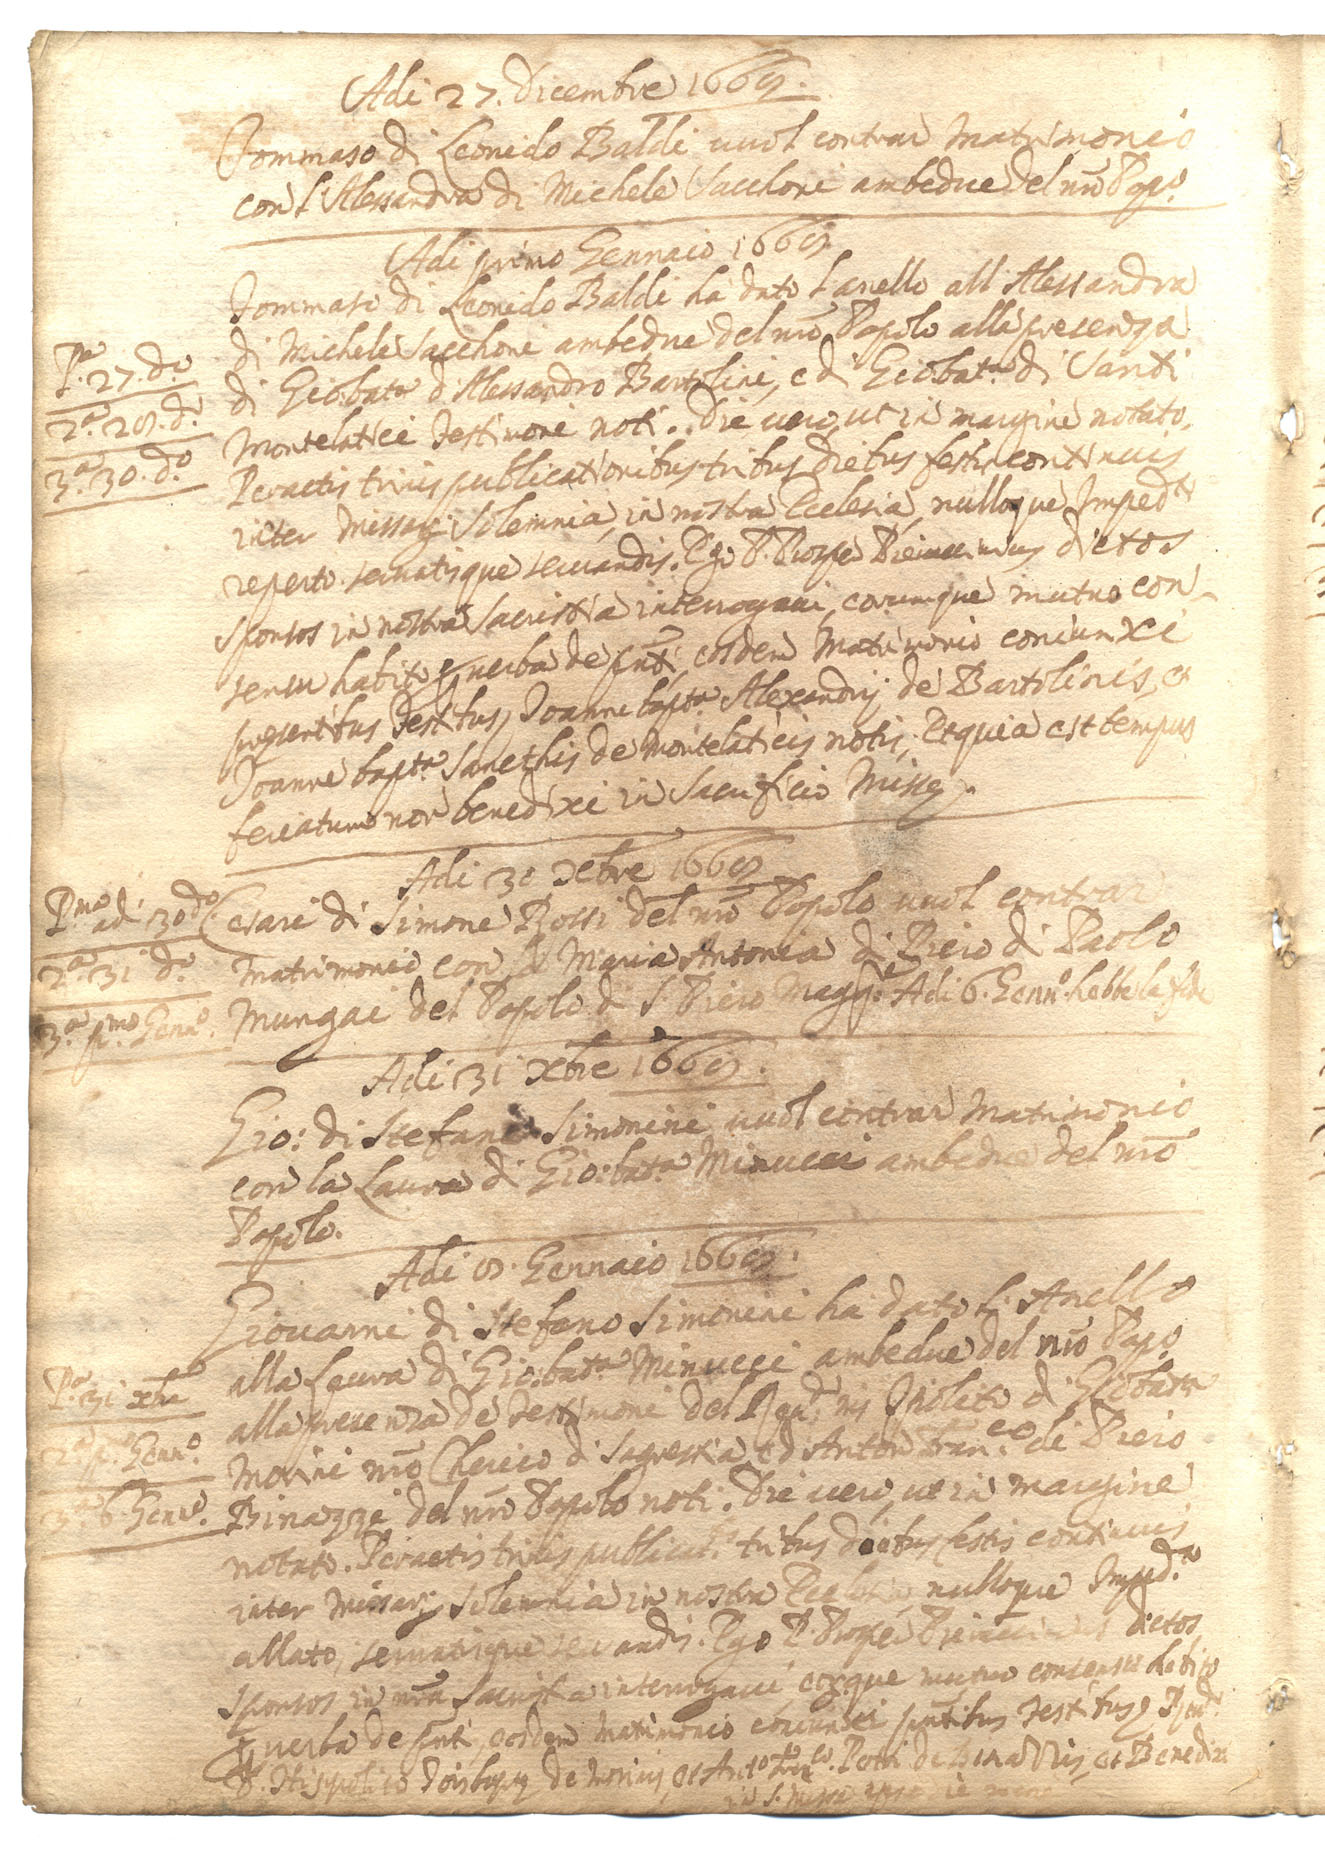 Adi 27. dicembre 1669.
Tommaso di Leonido Baldi vuol contrar Matrimonio
con l'Alessandra di Michele Sacchoni ambedue del nro Pop.o
Adi primo Gennaio 1669
Tommaso di Leonido Baldi ha dato l'anello all'Alessandra
di Michele Sacchoni ambedue del nro Popolo alla presenza
P.a 27. d.o
di Gio:bat.a d'Alessandro Bartolini, e di Gio:bat.a di Santi
2.a 29. d.o
Montelatici testimoni noti. Die vero, ut in margine notato.
3.a 30. d.o
Peractis trinis publicationibus tribus diebus festis continuis
inter Missarum solemnia, in nostra Ecclesia, nulloque Imped.to
reperto servatisque servandis. Ego P. Prosper dictos
sponsos in nostra Sacristia interrogavi, eorumque mutuo con-
sensu habito per verba de pnti, eosdem Matrimonio coniunxi
presentibus testibus, Joanne bapt.a Alexandrij de Bartolinis, et
Joanne bapt.a Sancthis de Montelaticis notis; Et quia est tempus
feriatum non benedixi in Sacrificio Missę.
Adi 30 Xbre 1669
P.ma adi 30 d.o
Cesari di Simone Rossi del nro Popolo vuol contrar
2.a 31 d.o
Matrimonio con la Maria Antonia di Piero di Paolo
3.a p.mo Genn.o
Mungai del Popolo di S. Piero Magg.re Adi 6. Genn.o hebbe la fede
Adi 31 Xbre 1669.
Gio: di Stefano Simonini vuol contrar Matrimonio
con la Laura di Gio:bat.a Minucci ambedue del nro
Popolo.
Adi 9. Gennaio 1669.
Giovanni di Stefano Simonini ha dato l'Anello
alla Laura di Gio:bat.a Minucci ambedue del nro Pop.o
P.a 31 Xbre
alla presenza de testimoni del Rev.do ms Ipolito di Gio:bat.a
2.a p.o Genn.o
Morini nro Cherico di Sagrestia, e d'Anton Fran.co di Piero
3.a 6. Genn.o
Binazzi del nro Popolo noti. Die vero, ut in margine
notato. Peractis trinis publicat.s tribus diebus festis continuis
inter Missarum solemnia in nostra Ecclesia, nulloque Imped.to
allato, servatisque servandis. Ego P. Prosper dictos
sponsos in nra Sacristia interrogavi eorumque mutuo consensu habito
per verba de pnti, eosdem Matrimonio coniunxi pntibus testibus, Rev.do
D. Hippolito Jois bapę de Morinis, et Ant.o Fran.co Petri de Binazzis, et Benedixi
in S. Missa